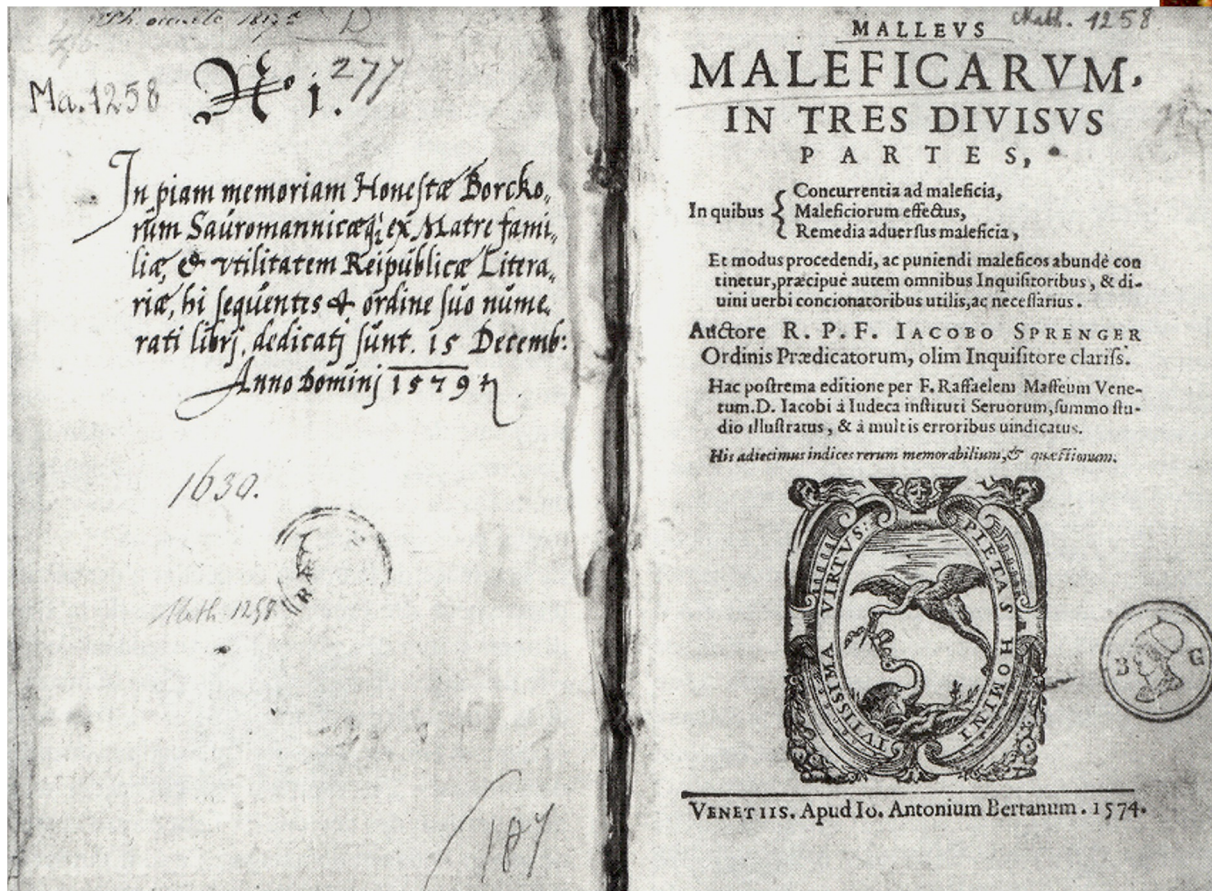 Ph. occulte 1817
D
Ma.1258 No. 1. 277
In piam memoriam Honestæ Borcko,,
rum Saúromannicæq; ex Matre fami,,
liæ, & vtilitatem Reipúblicæ Litera,,
riæ, hi seqúentes & ordine súo núme,,
rati librj, dedicatj súnt. 15 Decemb:
Anno Dominj 1579
1630.
Math. 1258
187
Math. 1258
MALLEVS
MALEFICARVM,
IN TRES DIVISVS
PARTES,
In quibus { Concurrentia ad maleficia,
Maleficiorum effectus,
Remedia aduersus maleficia,
Et modus procedendi, ac puniendi maleficos abundè con
tinetur, præcipuè autem omnibus Inquisitoribus, & di-
uini uerbi concionatoribus utilis, ac necessarius.
Auctore R. P. F. IACOBO SPRENGER
Ordinis Prædicatorum, olim Inquisitore clariss.
Hac postrema editione per F. Raffaelem Maffeum Vene-
tum. D. Iacobi à Iudeca instituti Seruorum, summo stu-
dio illustratus, & à multis erroribus uindicatus.
His adiecimus indices rerum memorabilium, & quæstionum.
PIETAS HOMINI TVTISSIMA VIRTVS
B G
VENETIIS. Apud Io. Antonium Bertanum. 1574.